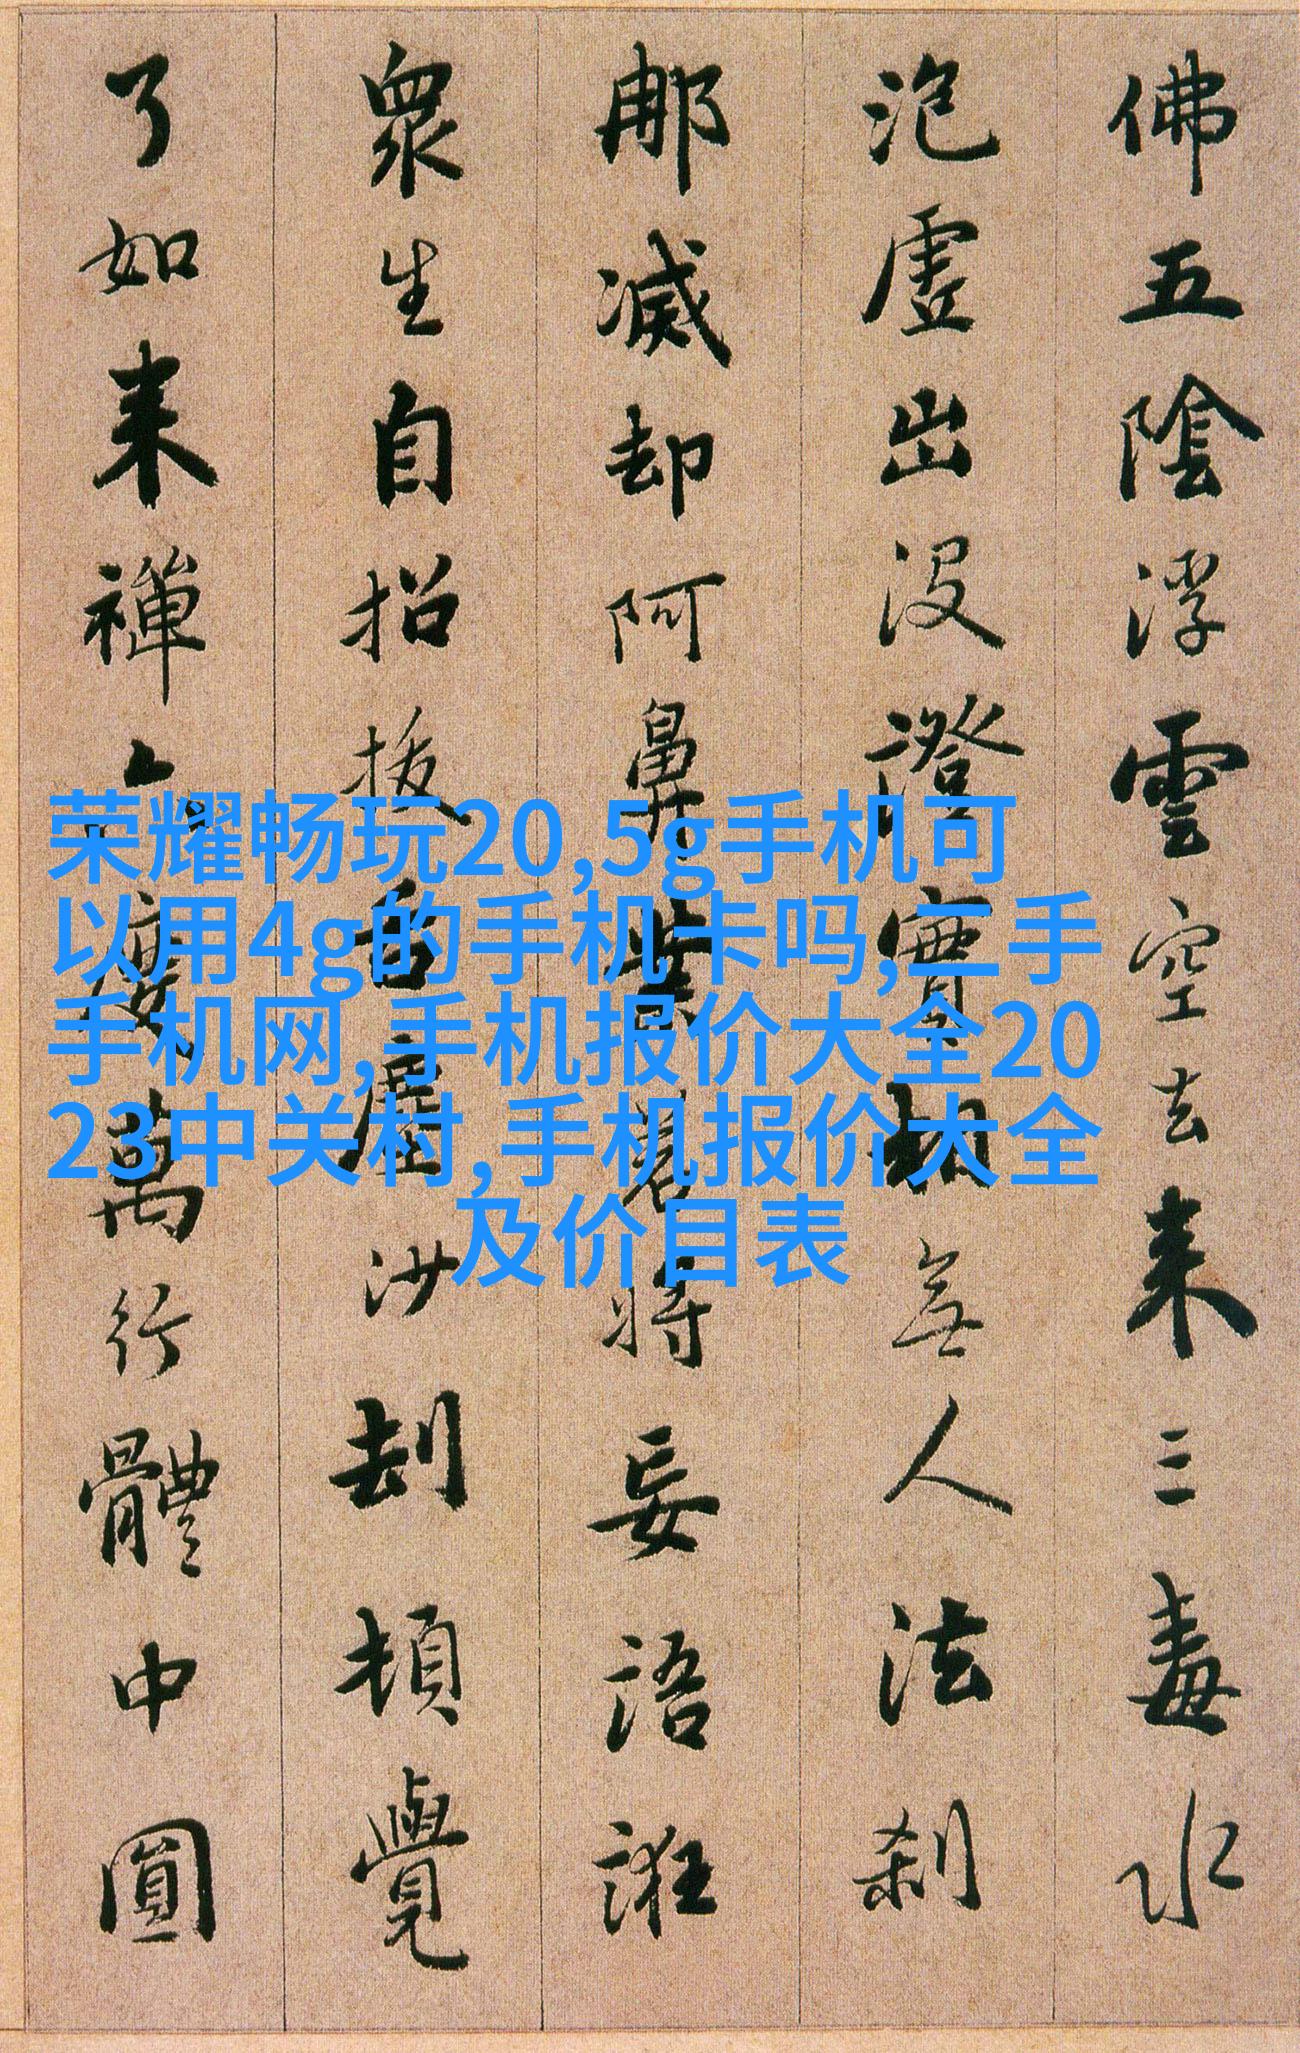 佛五陰浮雲空去来三毒水
泡虛出没證實相無人法刹
那滅却阿鼻業若將妄語誑
眾生自招拔舌塵沙劫頓覺
了如来禪六度萬行體中圓
荣耀畅玩20,5g手机可
以用4g的手机卡吗,二手
手机网,手机报价大全20
23中关村,手机报价大全
及价目表